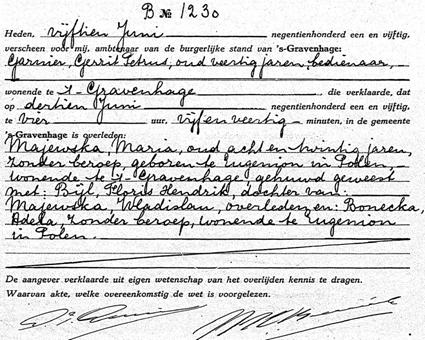 B № 1230
Heden, vijftien Juni negentienhonderd een en vijftig,
verscheen voor mij, ambtenaar van de burgerlijke stand van 's-Gravenhage:
Garnier, Gerrit Petrus, oud veertig jaren, bedienaar,
wonende te 's-Gravenhage die verklaarde, dat
op dertien Juni negentienhonderd een en vijftig,
te vier uur, vijf en veertig minuten, in de gemeente
's-Gravenhage is overleden:
Majewska, Maria, oud acht en twintig jaren,
zonder beroep, geboren te Eugenion in Polen,
wonende te 's-Gravenhage gehuwd geweest
met: Bijl, Floris Hendrik, dochter van:
Majewska, Wladislau, overleden, en: Bonecka,
Adela, zonder beroep, wonende te Eugenion
in Polen.
De aangever verklaarde uit eigen wetenschap van het overlijden kennis te dragen.
Waarvan akte, welke overeenkomstig de wet is voorgelezen.